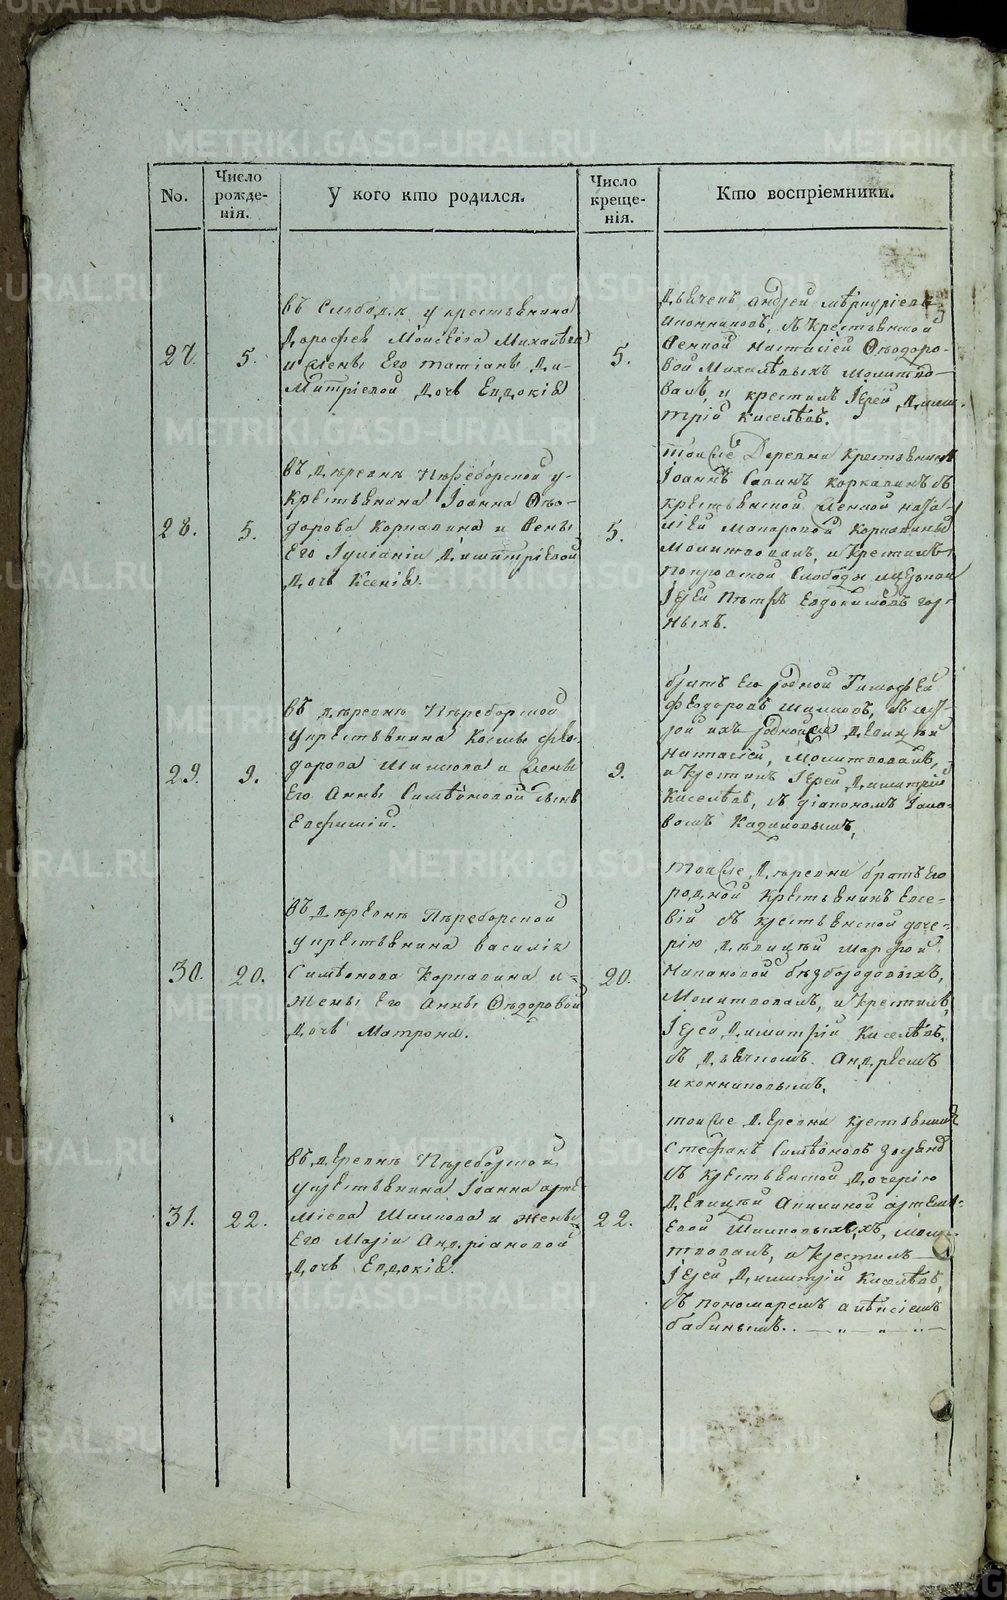 No.
Число рожде-
нія.
У кого кто родился.
Число креще-
нія.
Кто воспріемники.
27.
5.
въ Слободѣ у крестьянина
Дорофея Моисеева Михалева
и жены Его татіаны Ди-
Митріевой Дочь Евдокія
5.
Дьячекъ андрей
съ крестьянской
женкой настасіей Ѳеодоро-
вой Михалевыхъ Молитво-
валъ, и крестилъ Іерей Дими-
трій Киселевъ.
28.
5.
въ Деревнѣ Переборской у
Крестьянина Іоанна Ѳео-
дорова Корналина и жены
Его Іуліаніи Димитріевой
Дочь Ксенія.
5.
тоя же Деревни Крестьянинъ
Іоаннъ Савинъ Коркалинъ съ
крестьянской женкой
Макаровой
Молитвовалъ, и Крестилъ
Слободы
Іерей Петръ Евдокимовъ гор-
ныхъ.
29.
9.
въ деревнѣ Переборской
у крестьянина Козмы Фео-
дорова Шишкова и жены
Его Анны Симеоновой сынъ
Евфимій.
9.
братъ Его родной Тимофей
Феодоровъ Шишковъ, съ сест-
рой ихъ родной же Девицей
настасіей, Молитвовалъ,
и крестилъ Іерей Димитрій
Киселевъ, съ діакономъ Іако-
вомъ
30.
20.
въ Деревнѣ Переборской
у крестьянина василія
Симеонова Корналина и
Жены Его Анны Ѳеодоровой
Дочь Матрона.
20.
тоя же Деревни братъ Его
родной Крестьянинъ Евсе-
вій съ крестьянской доче-
рію девицей марфой
безбородовыхъ,
Молитвовалъ, и Крестилъ,
Іерей Димитрій Киселевъ,
съ Дьячкомъ Андреемъ
иконниковымъ.
31.
22.
въ деревнѣ Переборской
у крестьянина Іоанна арте-
міева Шишкова и жены
Его Маріи Андріановой
Дочь Евдокія.
22.
тоя же Деревни крестьянинъ
Стефанъ Симеоновъ
съ крестьянской Дочерію
Девицей Акилиной артемі-
евой Шишковыхъ, моли-
твовалъ, и крестилъ
Іерей Димитрій Киселевъ,
съ пономаремъ алексіемъ
бабинымъ.
METRIKI.GASO-URAL.RU